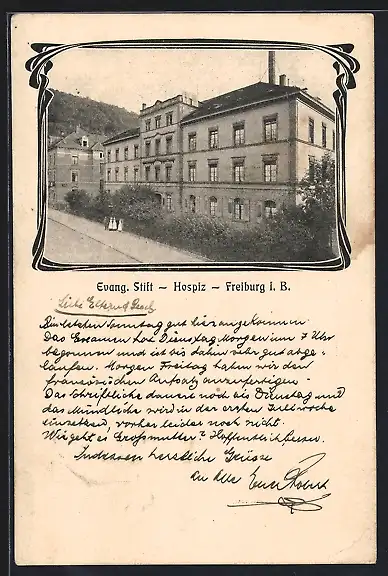 Evang. Stift ~ Hospiz ~ Freiburg i. B.
Liebe Eltern u. Gesch.
Bin letzten Sonntag gut hier angekommen.
Das Examen hat Dienstag Morgen um 7 Uhr
begonnen und ist bis dahin sehr gut abge-
laufen. Morgen Freitag haben wir den
französischen Aufsatz anzufertigen.
Das Schriftliche dauert noch bis Dienstag und
das Mündliche wird in der ersten Juliwoche
einsetzen, vorher leider noch nicht.
Wie geht es Grossmutter? Hoffentlich besser.
Indessen herzliche Grüsse
an alle Euer Robert